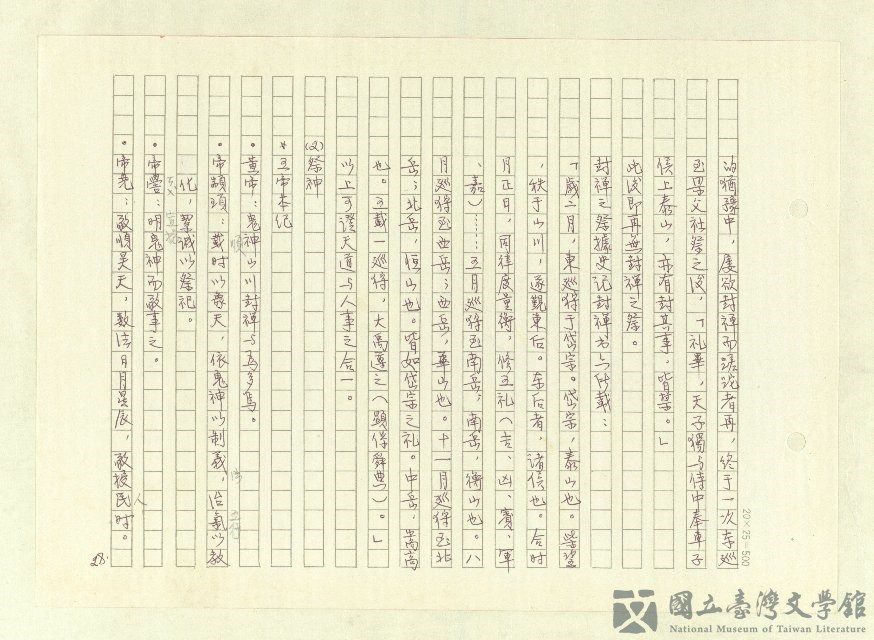 的猶豫中，屢欲封禪而蹉跎者再，終于一次东巡
至梁父社祭之後，「礼畢，天子獨与侍中奉車子
侯上泰山，亦有封其事，皆禁。」
此後即再無封禪之祭。
封禪之祭據史记封禪书六所載：
「歲二月，東巡狩于岱宗。岱宗，泰山也。柴望
，秩于山川，遂覲東后。东后者，诸侯也。合时
月正日，同律度量衡，修五礼（吉、凶、賓、軍
、嘉）……五月巡狩至南岳；南岳，衡山也。八
月巡狩至西岳；西岳，華山也。十一月巡狩至北
岳；北岳，恒山也。皆如岱宗之礼。中岳，嵩高
也。五載一巡狩，大禹遵之（顯係舜典）。」
以上可證天道与人事之合一。
(2)祭神
*五帝本纪
•黃帝：鬼神山川封禪与為多焉。
•帝顓頊：載时以象天，依鬼神以制義，治氣以教
化，絜诚以祭祀。
•帝嚳：明鬼神而敬事之。
•帝堯：敬順昊天，數法日月星辰，敬授民时。
人
28.
20×25=500
國立臺灣文學館
National Museum of Taiwan Literature